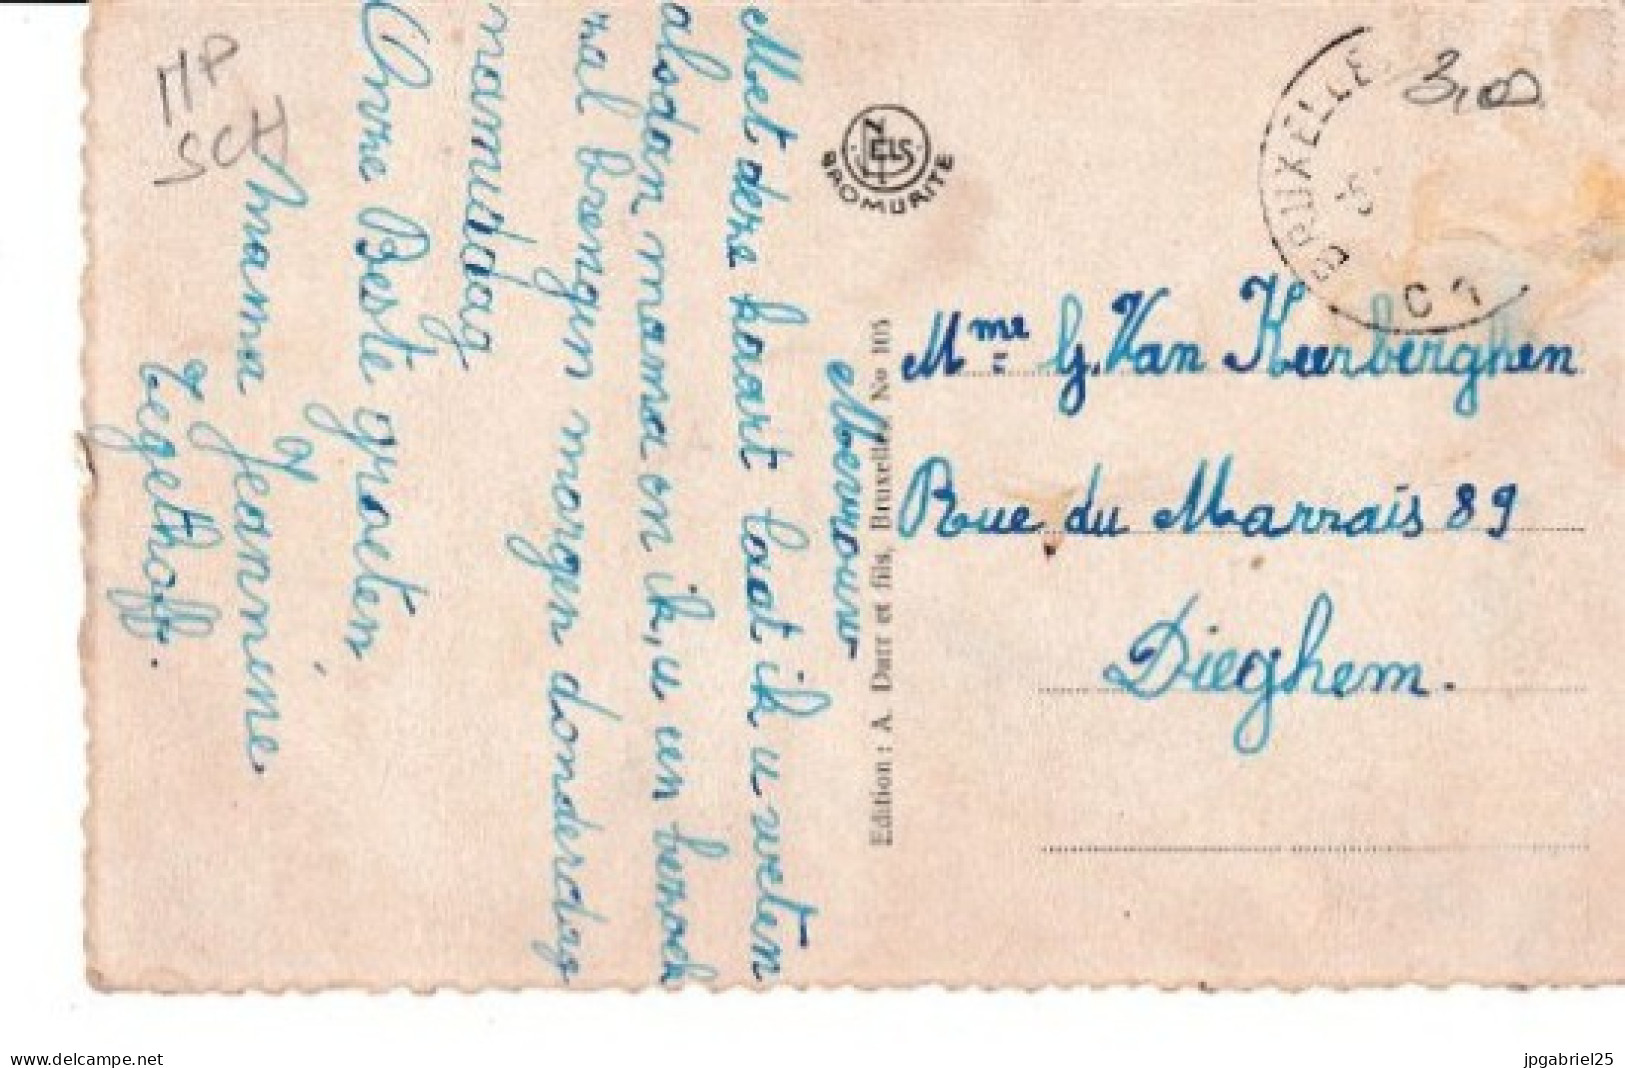 MP
SCH
Mevrouw
Met deze kaart laat ik u weten
alsdan mama en ik, u een bezoek
zal brengen morgen donderdag
namiddag
Onze Beste groeten
mama & Jeannine
& Tegethoff.
NELS
BROMURITE
Edition : A. Durr et fils, Bruxelles. No 105
BRUXELLE
C 1
3,00
Mme G. Van Keerberghen
Rue du Marrais 89
Dieghem.
www.delcampe.net
jpgabriel25